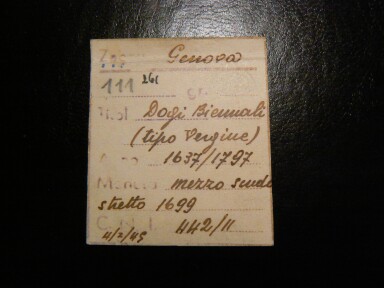 Genova
111 261
Dogi Biennali
(tipo Vergine)
1637/1797
mezzo scudo
stretto 1699
442/11
11/2/45